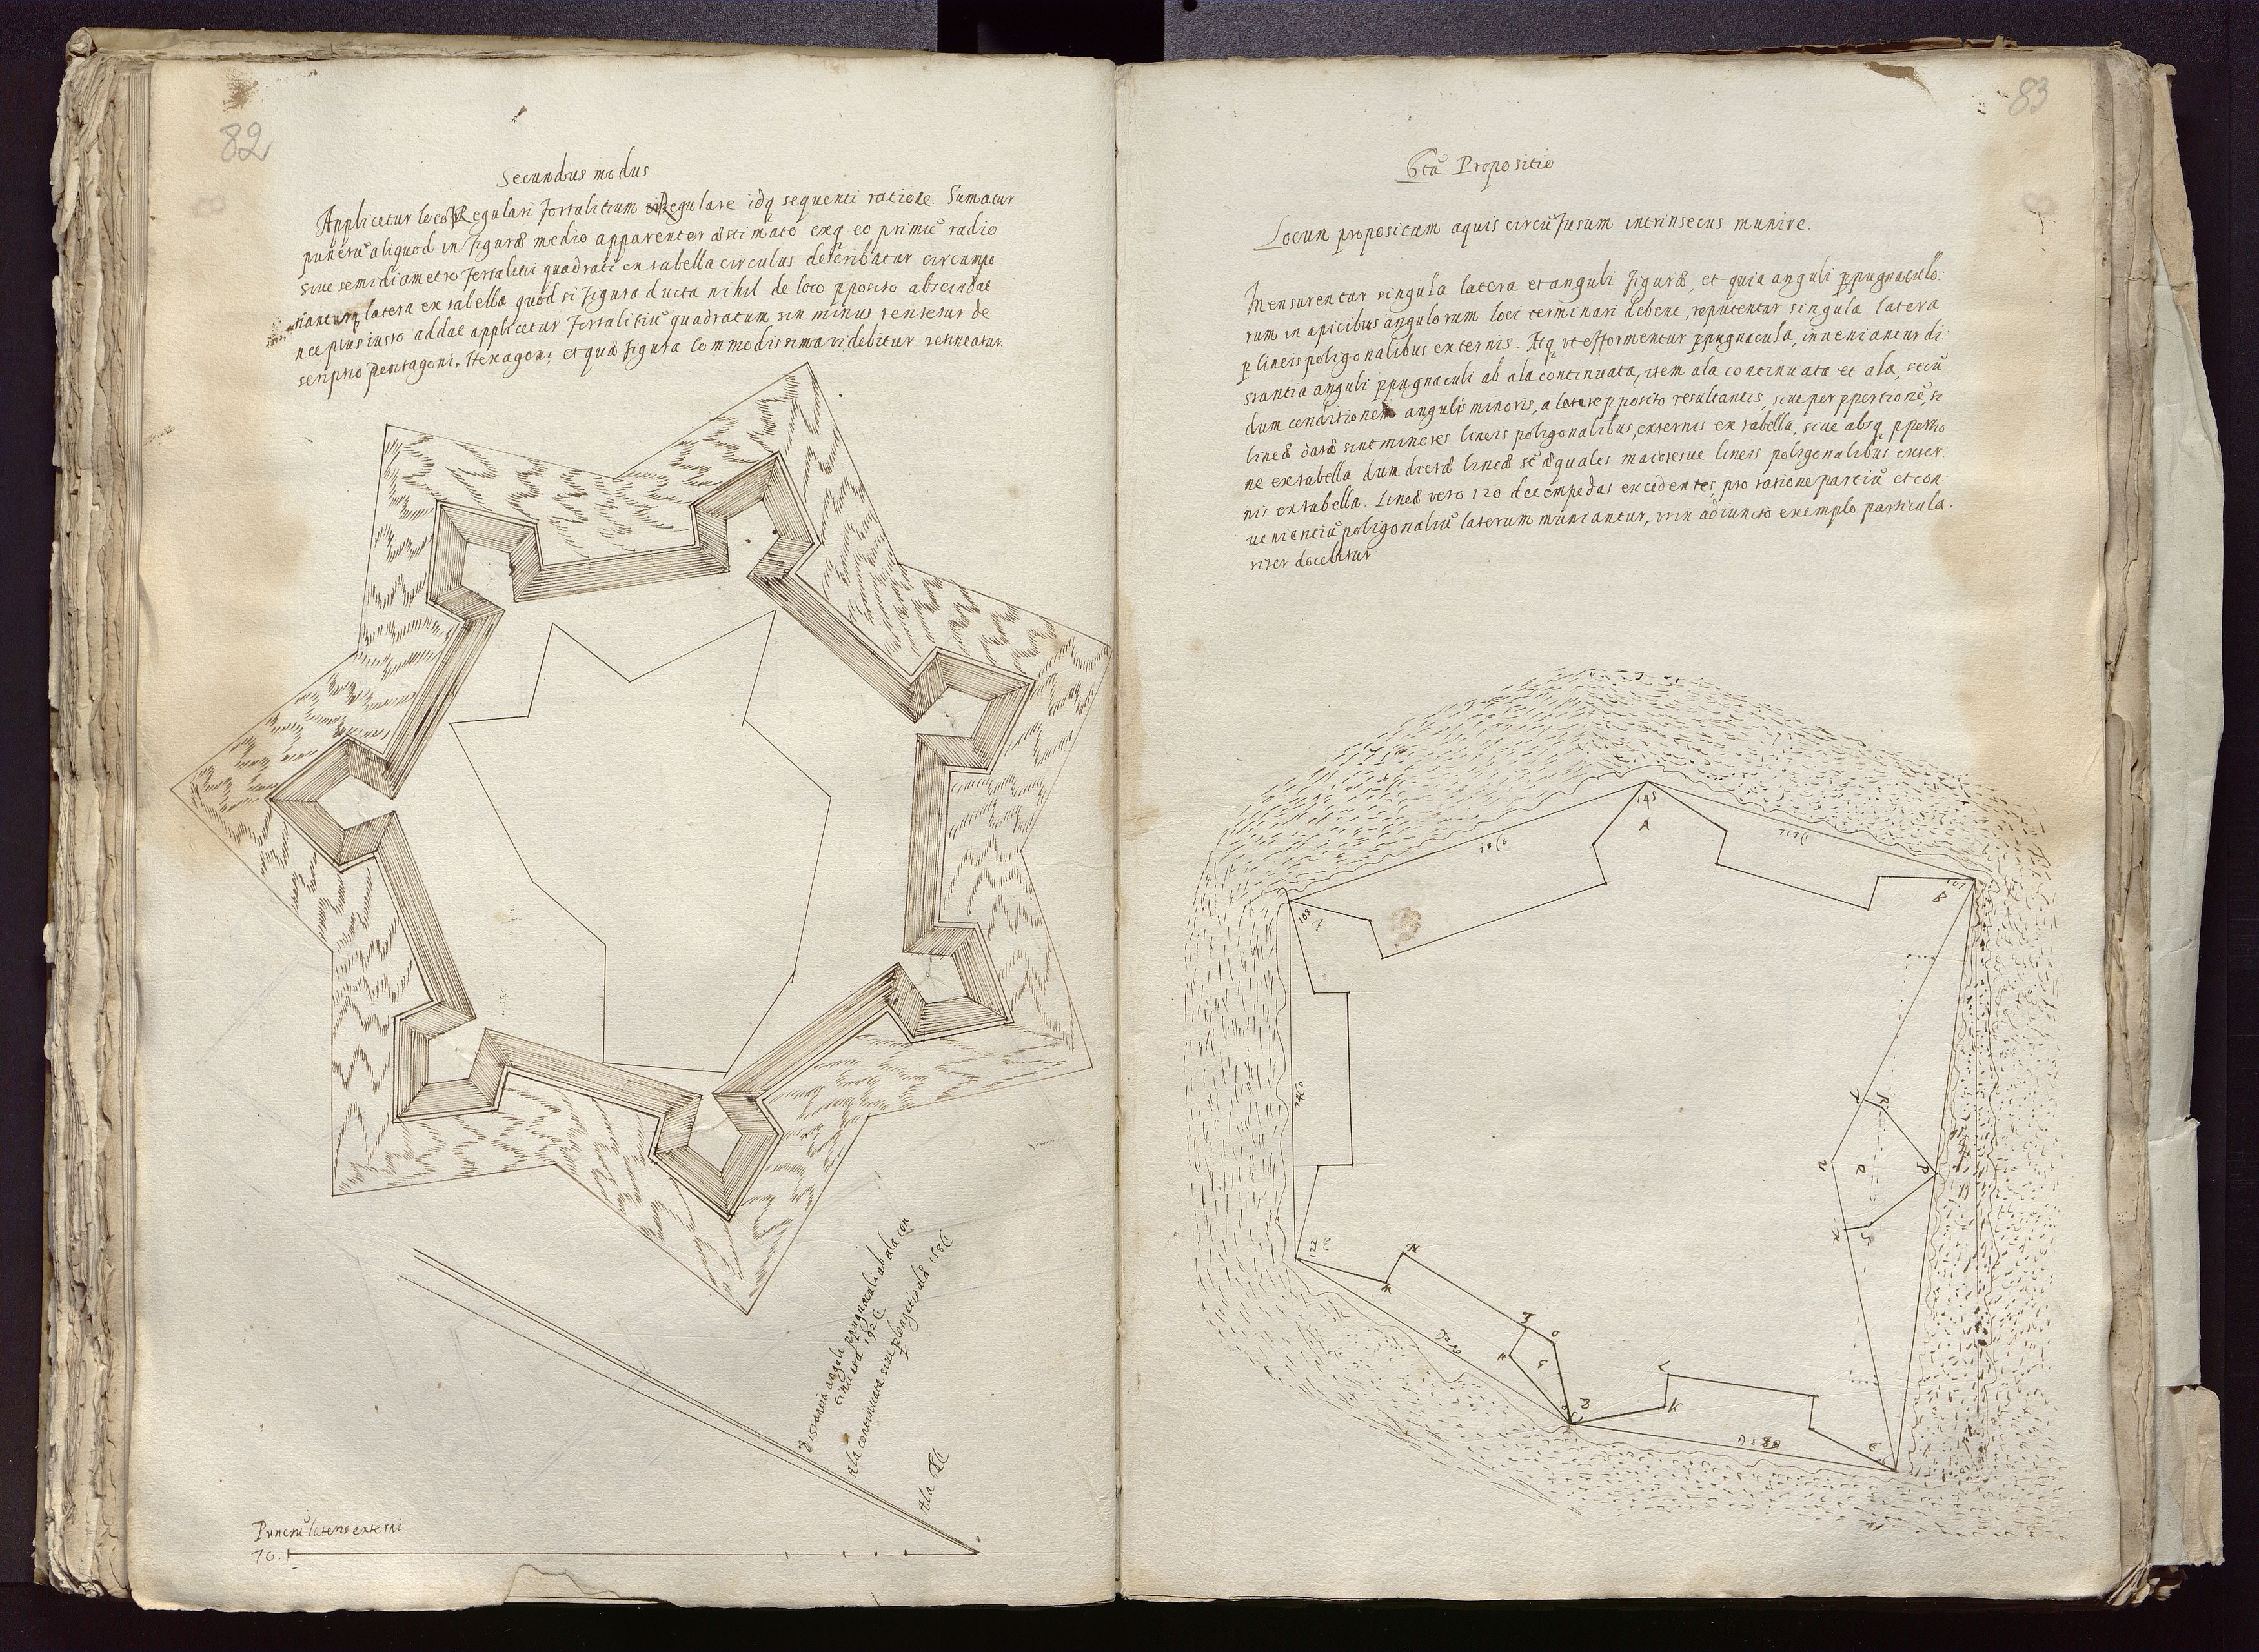 82
Secundus modus
Applicetur loco Regulari fortalitium Regulare idq sequenti ratione. Sumatur
punctũ aliquod in figuræ medio apparenter æstimato exq eo primũ radio
siue semidiametro fortalitii quadrati ex tabella circulus describatur circumpo
nanturq latera ex tabella quod si figura ducta nihil de loco pposito abscindat
nec plus iusto addat applicetur fortalitiũ quadratum sin minus tentetur de
scriptio pentagoni, Hexagoni et quæ figura Commodissima videbitur retineatur.
Distantia anguli ppugnaculi ab ala con
tinuata
Ala continuata siue
Ala
Punctũ lateris externi
70.
83
6ta Propositio
Locum propositum aquis circũfusum intrinsecus munire.
Mensurentur singula latera et anguli figuræ, et quia anguli ppugnaculo:
rum in apicibus angulorum loci terminari debent, reputentur singula latera
p lineis poligonalibus externis. Atq vt efformentur ppugnacula, inueniantur di:
stantia anguli ppugnaculi ab ala continuata, item ala continuata et ala, secũ
dum conditionem anguli minoris, a latere pposito resultantis, siue per pportionẽ, si
lineæ datæ sint minores lineis poligonalibus, externis ex tabella, siue absq pportio
ne ex tabella dum dictæ lineæ st æquales maioresue lineis poligonalibus exter:
nis ex tabella. Lineæ vero 120 decempedas excedentes, pro ratione partiũ et con:
uenientiũ poligonaliũ laterum muniantur, vti in adiuncto exemplo particula:
riter docebitur
145
A
B
108
122
P